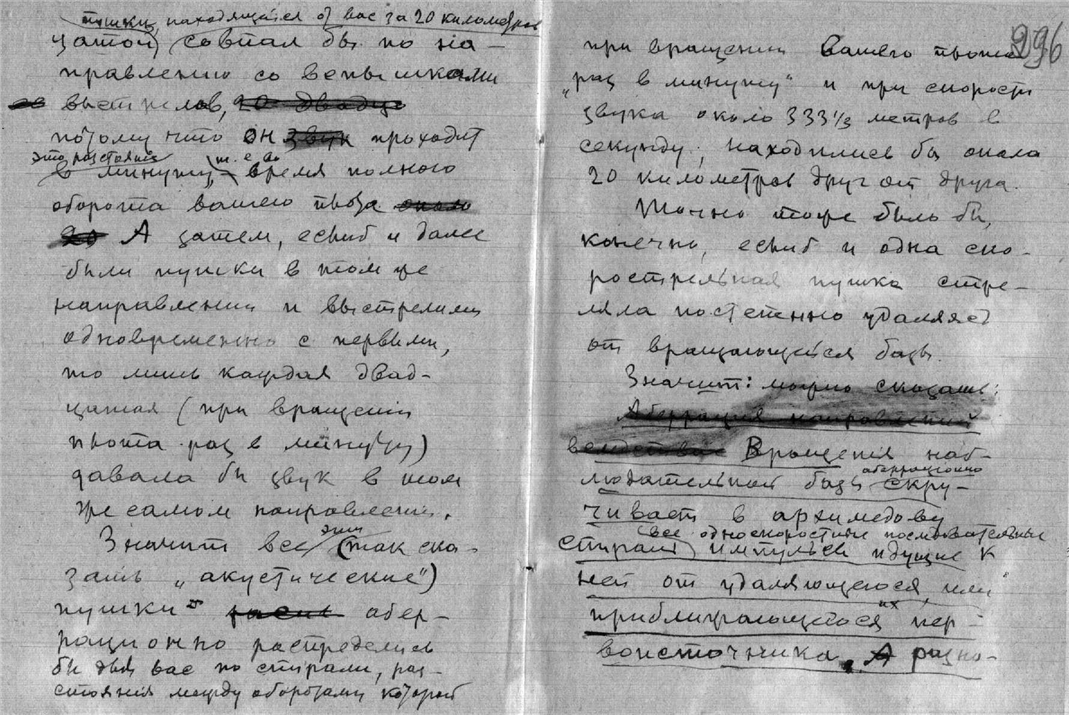 пушки, находящейся от вас за 20 километров
совпал бы по на-
правлению со вспышками
выстрелов,
потому что он звук проходит
это расстояние т. е. во
в минуту, время полного
оборота вашего
А затем, еслиб и далее
были пушки в том же
направлении и выстрелили
одновременно с первыми,
то лишь каждая двад-
цатая (при вращении
плота раз в минуту)
давала бы звук в том
же самом направлении.
Значит все эти (так ска-
зать „акустические")
пушки абер-
рационно распределись
бы для вас по спирали, рас-
стояния между оборотами которой
296
при вращении вашего плота
„раз в минуту" и при скорости
звука около 333 1/3 метров в
секунду, находились бы около
20 километров друг от друга.
Точно тоже было бы,
конечно, еслиб и одна ско-
рострельная пушка стре-
ляла постепенно удаляясь
от вращающейся базы.
Значит: можно сказать:
Аберрация направлений
вследствие Вращения наб-
людательной базы аберрационно скру-
чивает в архимедову
спираль все односкоростные последовательные
импульсы идущие к
ней от удаляющегося, или
приближающегося их пер-
воисточника. А разно-